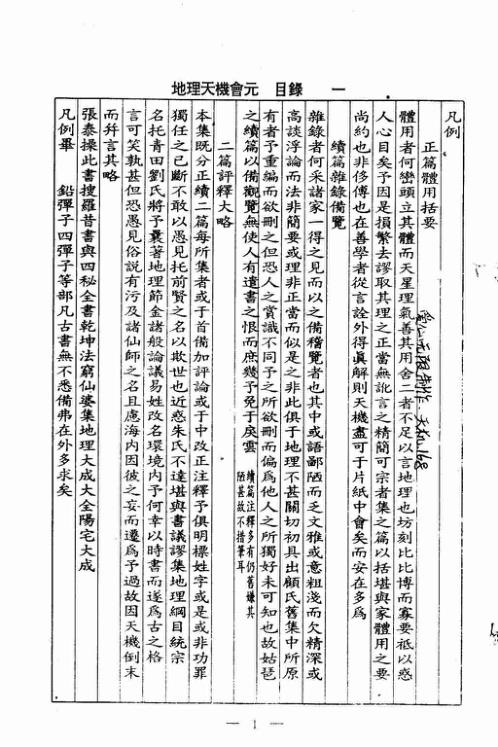 地理天機會元　目錄　一
凡例
正篇體用括要
體用者何巒頭立其體而天星理氣善其用舍二者不足以言地理也坊刻比比博而寡要祗以惑
人心目矣予因是損繁去謬取其理之正當無訛言之精簡可宗者集之篇以括堪輿家體用之要
尚約也非侈傳也在善學者從言詮外得真解則天機盡可于片紙中會矣而安在多為
續篇雜錄備覽
雜錄者何采諸家一得之見而以之備稽覽者也其中或語鄙陋而乏文雅或意粗淺而欠精深或
高談浮論而法非簡要或理非正當而似是之非此俱于地理不甚關切初具出顧氏舊集中所原
有者予重編而欲刪之但恐人之賞識不同予之所欲刪而偏為他人之所獨好未可知也故姑琶
之續篇以備觀覽無使人有遺書之恨而庶幾予免于戾雲
續篇注釋多有仍舊嫌其
陋甚故不措筆耳
二篇評釋大略
本集既分正續二篇每所集者或于首備加評論或于中改正注釋予俱明標姓字或是或非功罪
獨任之已斷不敢以愚見托前賢之名以欺世也近惑朱氏不達堪輿書議謬集地理綱目統宗
名托青田劉氏將予曩著地理節金諸般論議易姓改名環境內予何幸以時書而遂為古之格
言可笑孰甚但恐愚見俗說有污及諸仙師之名且慮海內因彼之妄而遷為予過故因天機倒末
而并言其略
張泰操此書搜羅昔書與四秘全書乾坤法窮仙婆集地理大成大全陽宅大成
凡例畢　鉛彈子四彈子等部凡古書無不悉備弗在外多求矣
— 1 —